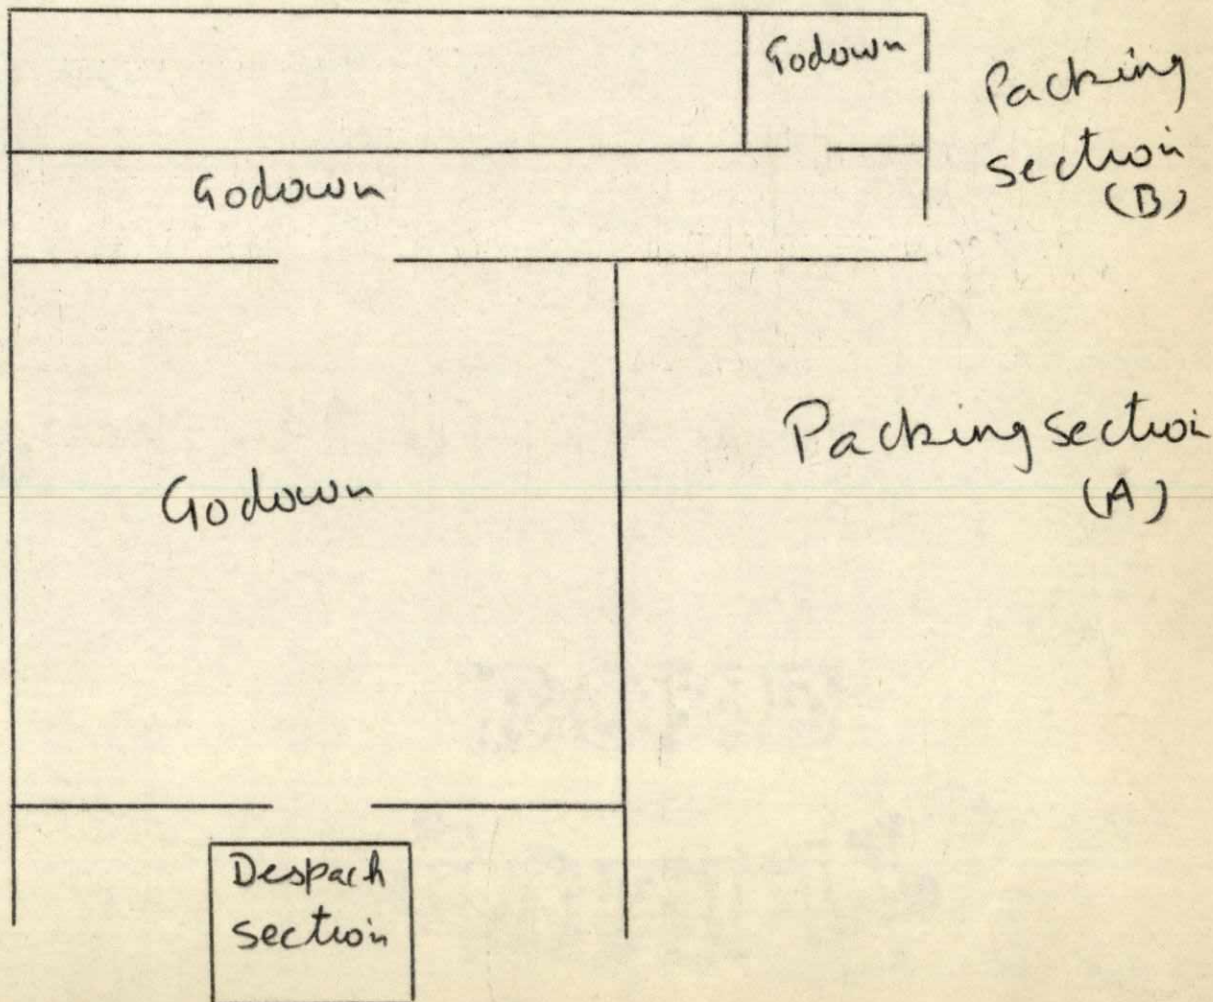 Godown
Packing
section
(B)
Godown
Packing section
(A)
Godown
Despach
section